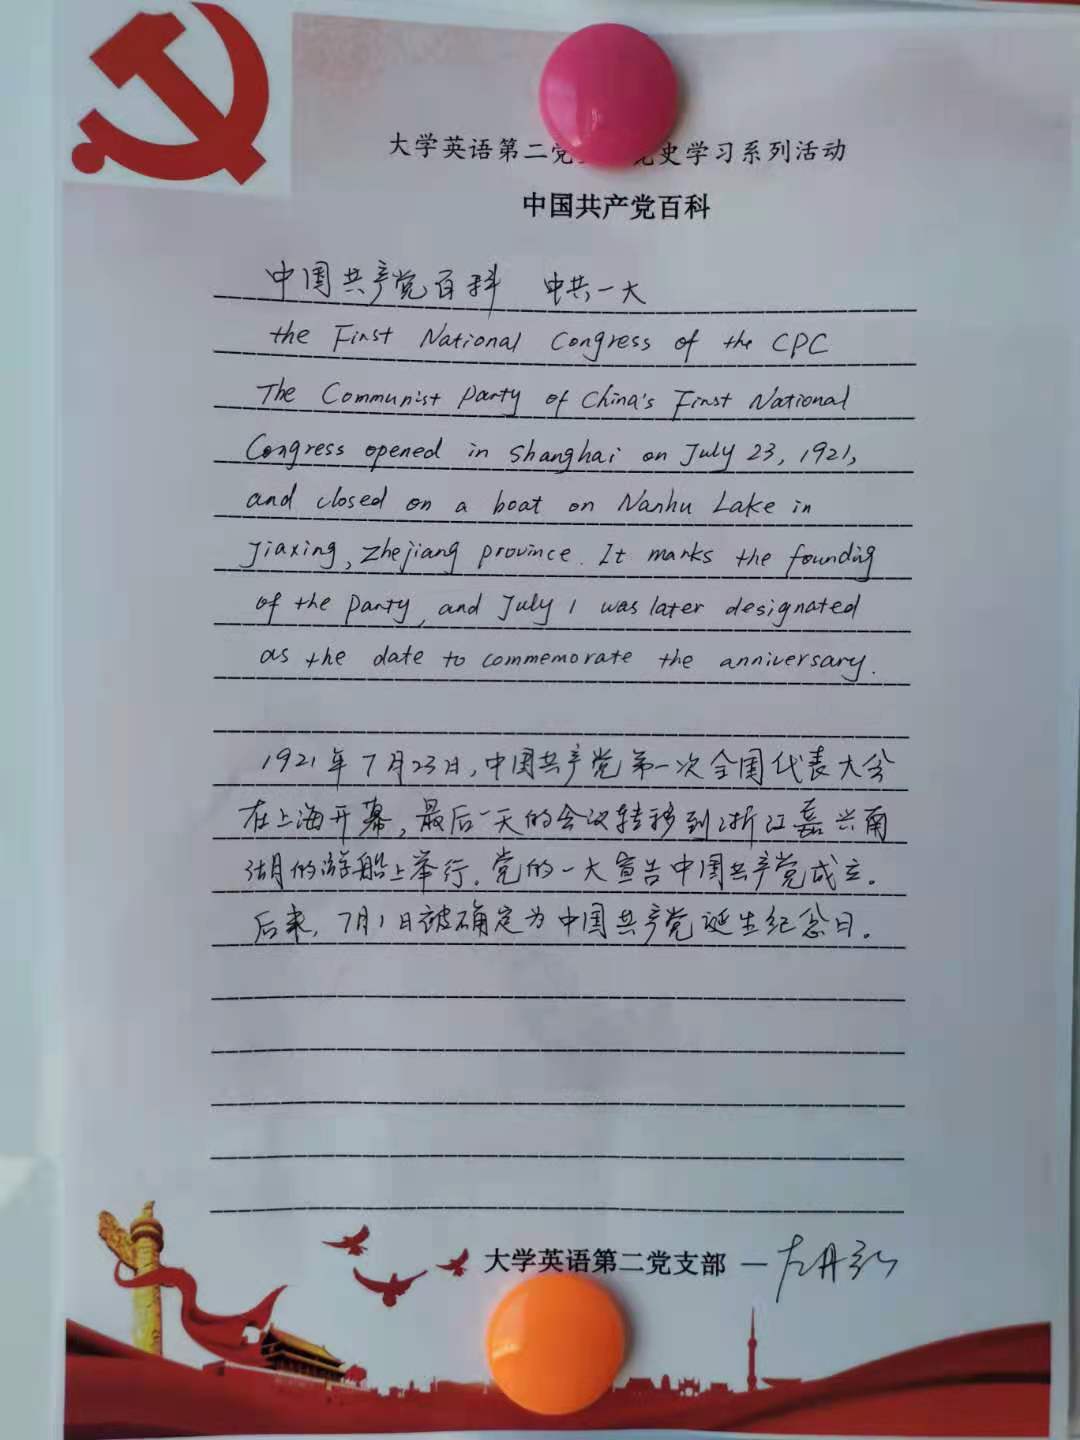 大学英语第二党 史学习系列活动
中国共产党百科
中国共产党百科 中共一大
the First National Congress of the CPC
The Communist Party of China's First National
Congress opened in Shanghai on July 23, 1921,
and closed on a boat on Nanhu Lake in
Jiaxing, Zhejiang province. It marks the founding
of the Party, and July 1 was later designated
as the date to commemorate the anniversary.
1921年7月23日,中国共产党第一次全国代表大会
在上海开幕,最后一天的会议转移到浙江嘉兴南
湖的游船上举行。党的一大宣告中国共产党成立。
后来,7月1日被确定为中国共产党诞生纪念日。
大学英语第二党支部 — 左丹弘